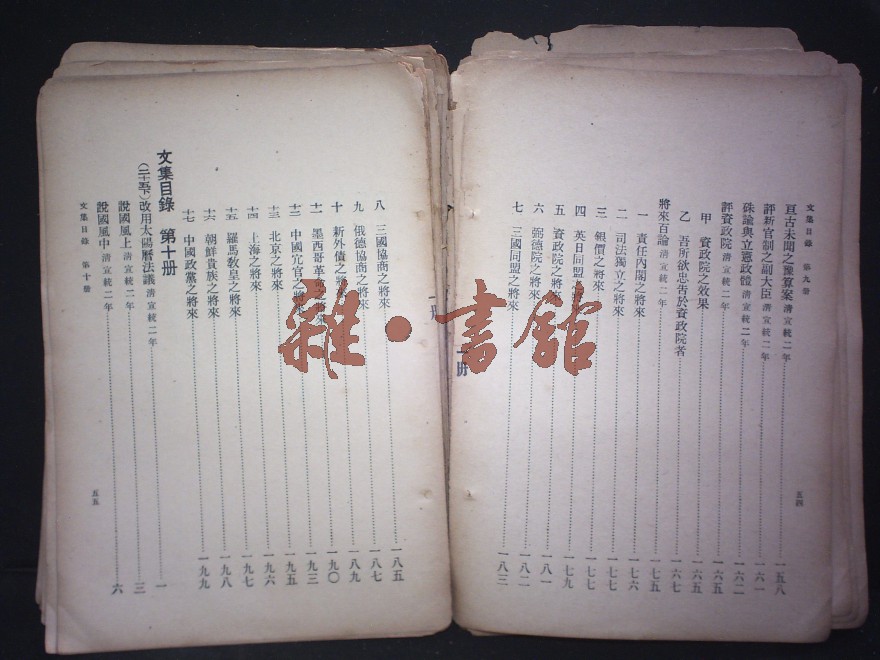 文集目錄 第九册
五四
亘古未聞之豫算案 清宣統二年 一五八
評新官制之副大臣 清宣統二年 一六一
硃諭與立憲政體 清宣統二年 一六二
評資政院 清宣統二年 一六五
甲 資政院之效果 一六五
乙 吾所欲忠告於資政院者 一六七
將來百論 清宣統二年 一七五
一 責任內閣之將來 一七六
二 司法獨立之將來 一七七
三 銀價之將來 一七七
四 英日同盟 一七九
五 資政院之將來 一八一
六 弼德院之將來 一八二
七 三國同盟之將來 一八三
八 三國協商之將來 一八五
九 俄德協商之將來 一八七
十 新外債之將來 一八九
十一 墨西哥革命之 一九〇
十二 中國宂官之將來 一九三
十三 北京之將來 一九五
十四 上海之將來 一九六
十五 羅馬教皇之將來 一九七
十六 朝鮮貴族之將來 一九八
十七 中國政黨之將來 一九九
文集目錄 第十册
(二十五下)改用太陽曆法議 清宣統二年 一
說國風上 清宣統二年 三
說國風中 清宣統二年 六
文集目錄 第十册
五五
雜·書館